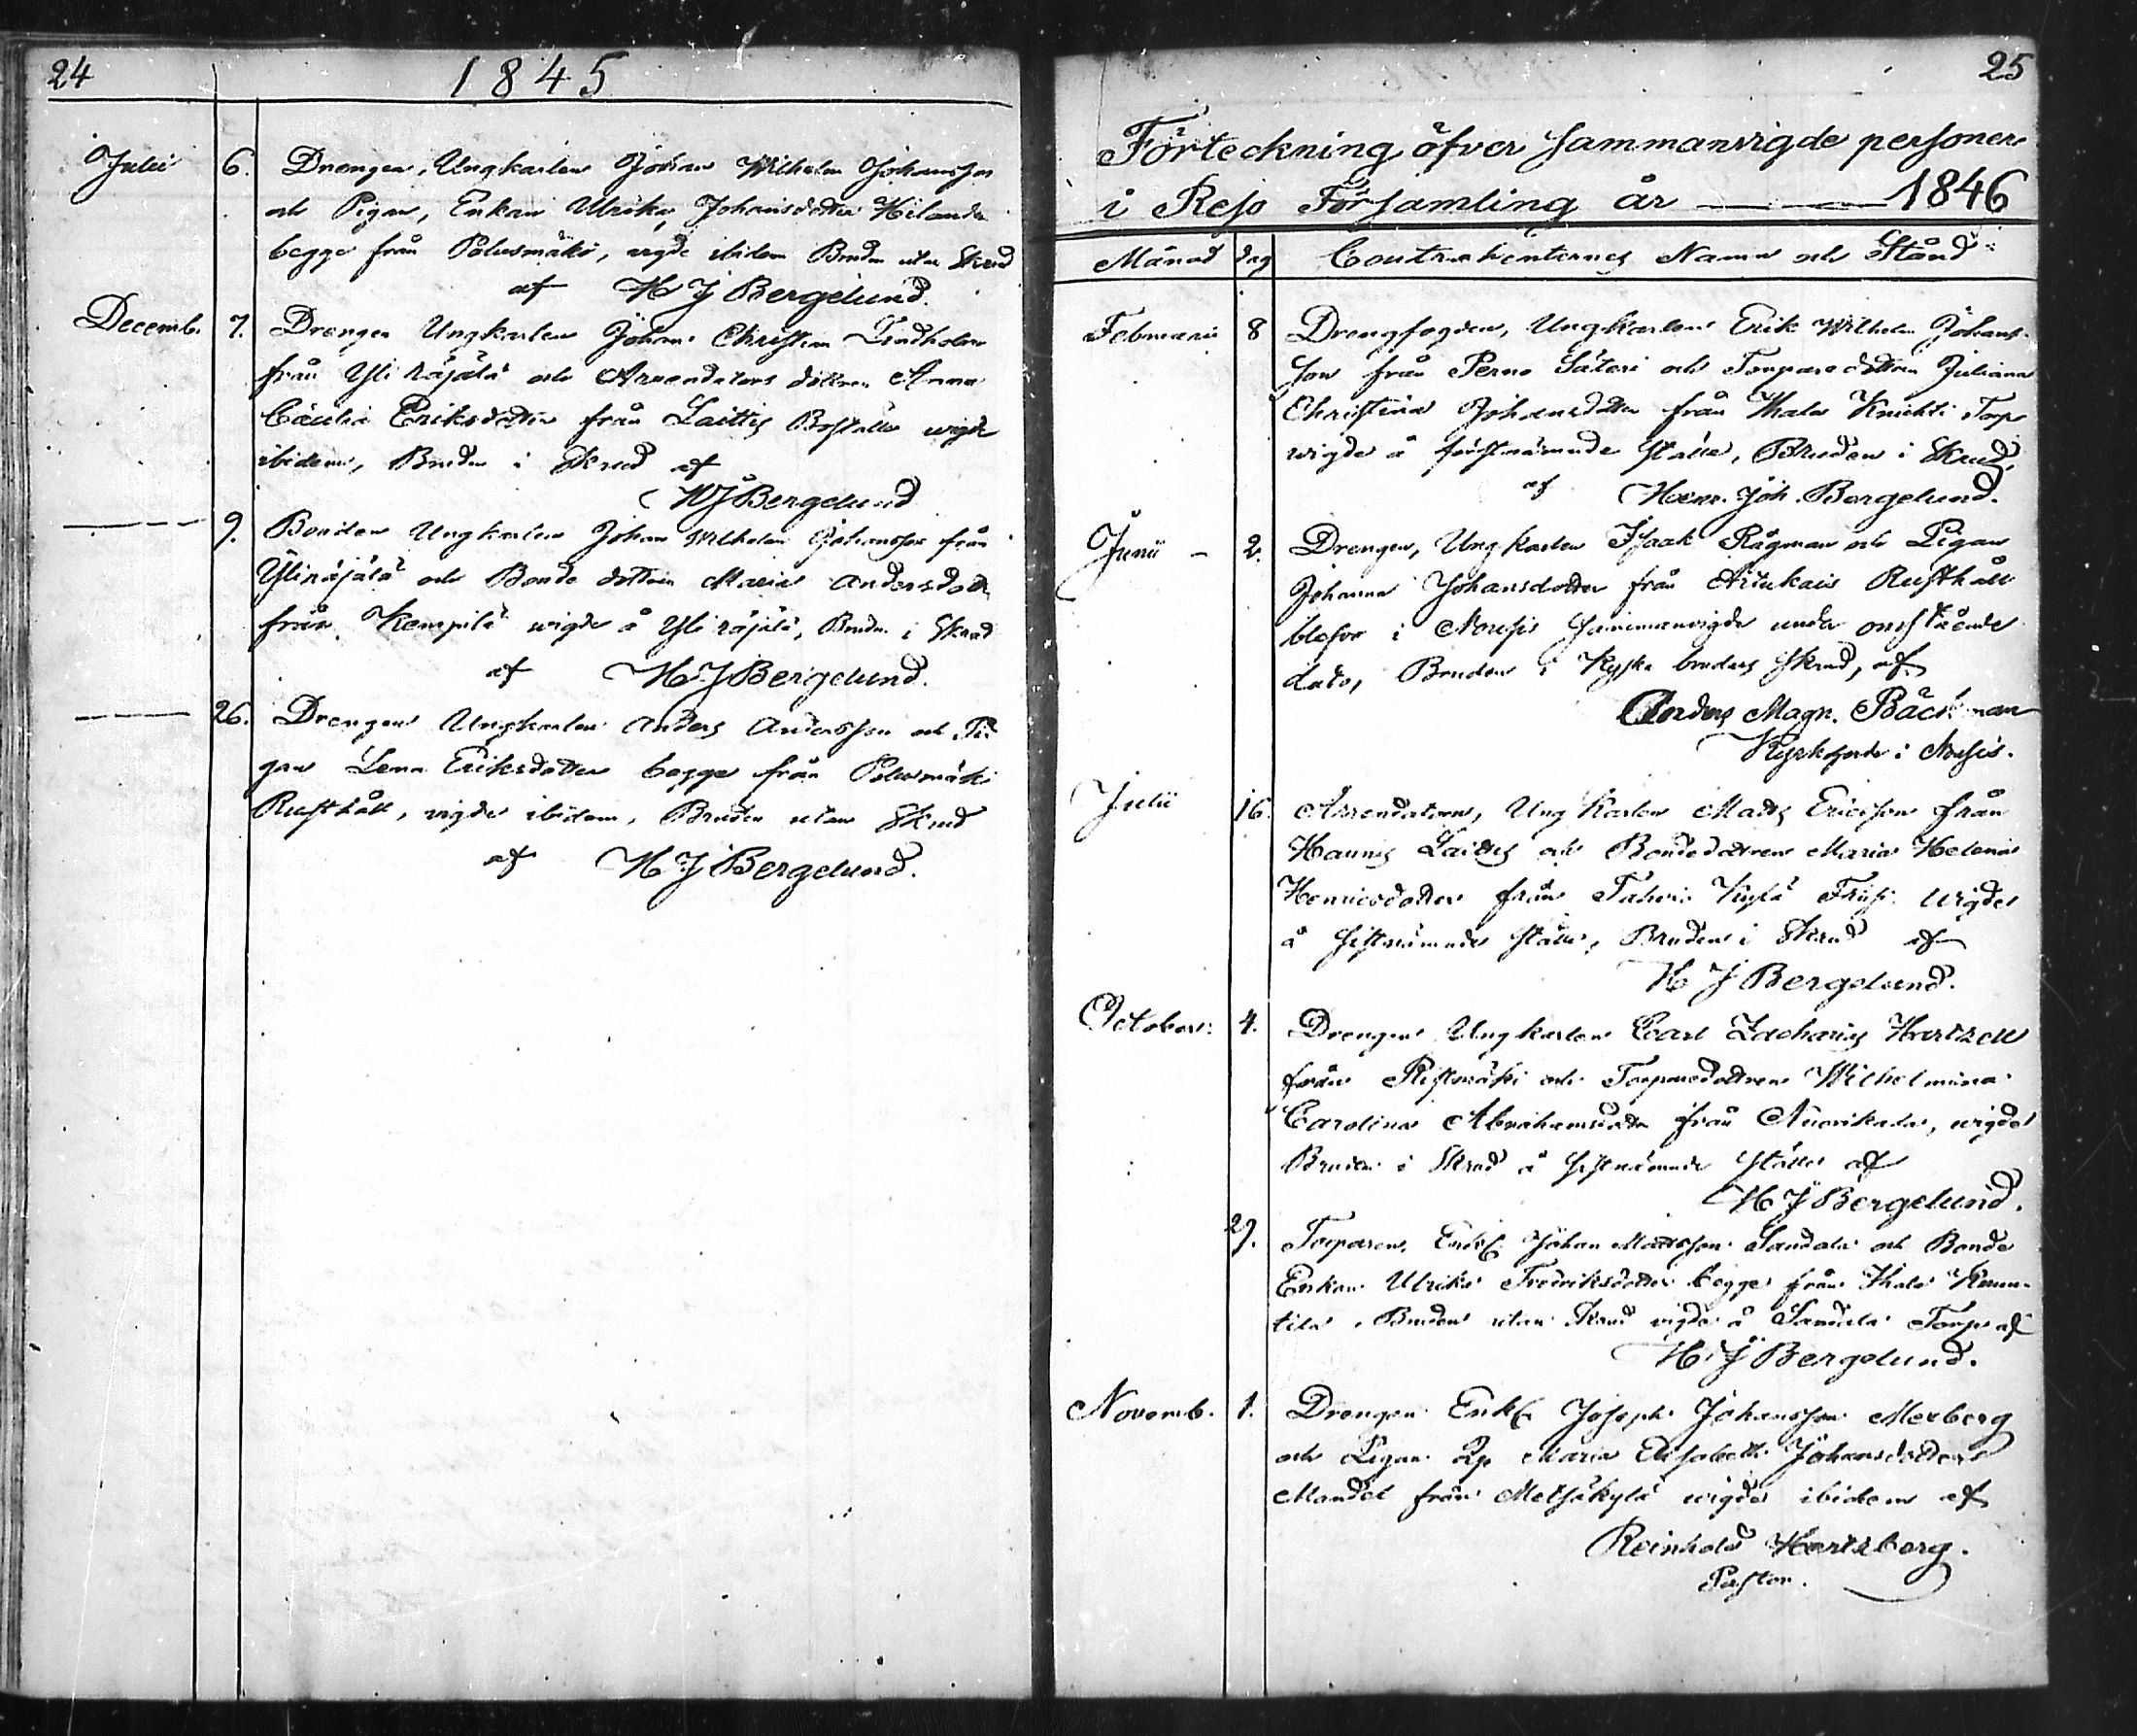 24
1845
Julii 6. Drengen, Ungkarlen Johan Wilhelm Johansson
och Pigan, Enkan Ulrika Johansdotter Helander
begge från Polusmäki, vigde ibidem Bruden utan Skrud
af H J Bergelund.
Decemb. 7. Drengen Ungkarlen Johan Christian Lindholm
från Yli räjälä och Arrendators dottren Anna
Cäcilia Eriksdotter från Laittis Boställe wigde
ibidem, Bruden i Skrud af
H J Bergelund
9. Bonden Ungkarlen Johan Wilhelm Johansson från
Yliräjälä och Bonde dottren Maria Andersdotter
från Kempilä wigde å Yli räjälä, Bruden i Skrud
af H J Bergelund.
26. Drengen Ungkarlen Anders Andersson och Pi-
gan Lena Eriksdotter begge från Polusmäki
Rusthåll, wigde ibidem, Bruden utan Skrud
af H J Bergelund.
25
Förteckning öfver sammanvigde personer
i Reso Församling år 1846
Månad dag Contrahenternes Namn och Stånd
Februarii 8 Drengfogden, Ungkarlen Erik Wilhelm Johans-
son från Perno Säteri och Torparedottren Juliana
Christina Johansdotter från Ihala Knuhti Torp
wigde å förstnämnde ställe, Bruden i Skrud,
af Henr. Joh. Bergelund.
Junii 2. Drengen, Ungkarlen Isaak Rågman och Pigan
Johanna Johansdotter från Artukais Rusthåll
blefvo i Nousis sammanvigde under
dato, Bruden i Kyska bruders skrud, af
Anders Magn. Bäckman
Kyrkoherde i Nousis.
Julii 16. Arrendatorn, Ungkarlen Matts Ericsson från
Hannis Laittis och Bondedottren Maria Helena
Henricsdotter från Tahvio Kylä wigde
å sistnämnde ställe, Bruden i Skrud af
H J Bergelund.
October 4. Drengen Ungkarlen Carl Zacharias Hartzell
från Ristimäki och Torparedottren Wilhelmina
Carolina Abrahamsdotter från Nuorikkala, wigde
Bruden i Skrud å sistnämnde ställe af
H J Bergelund.
29. Torparen, Enkl. Johan Mattsson Sandala och Bonde
Enkan Ulrika Fredriksdotter begge från Ihala
Bruden utan skrud wigde å Sandala Torp af
H J Bergelund.
Novemb. 1. Drengen Enkl. Joseph Johansson Merberg
och Pigan Maria Elisabeth Johansdotter
Mandel från Metsäkylä wigde ibidem af
Reinhold Hertzberg.
Pastor.